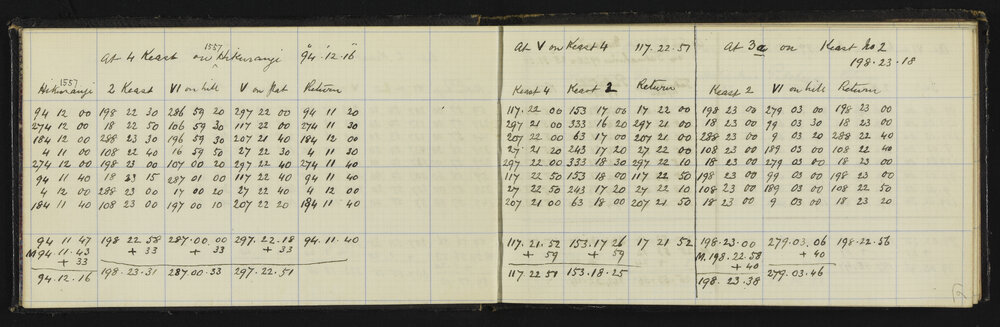 1557
at 4 Keast on Hikurangi 94·12·16
1557
Hikurangi 2 Keast VI on hill V on flat Return
94 12 00 198 22 30 286 59 20 297 22 00 94 11 20
274 12 00 18 22 50 106 59 30 117 22 00 274 11 30
184 12 00 288 23 30 196 59 30 207 21 40 184 12 00
4 11 00 108 22 40 16 59 50 27 22 30 4 11 30
274 12 00 198 23 00 107 00 20 297 22 40 274 11 40
94 11 40 18 23 15 287 01 00 117 22 40 94 11 40
4 12 00 288 23 00 17 00 20 27 22 40 4 12 00
184 11 40 108 23 00 197 00 10 207 22 20 184 11 40
94 11 47 198 22 58 287·00·00 297·22·18 94·11·40
M 94 11·43 + 33 + 33 + 33
+ 33
94·12·16 198·23·31 287 00 33 297·22·51
At V on Keast 4 117·22·51
Keast 4 Keast 2 Return
117·22 00 153 17 00 17 22 00
297 21 00 333 16 20 297 21 00
207 22 00 63 17 00 207 21 00
27 21 20 243 17 20 27 22 00
297 22 00 333 18 30 297 22 10
117 22 50 153 18 00 117 22 50
27 22 50 243 17 20 27 22 10
207 21 00 63 18 00 207 21 50
117·21·52 153·17 26 17 21 52
+ 59 + 59
117 22 51 153·18·25
At 3a on Keast No 2
198·23·18
Keast 2 VI on hill Return
198 23 00 279 03 00 198 23 00
18 23 00 99 03 30 18 23 00
288 23 00 9 03 20 288 22 40
108 23 00 189 03 00 108 22 40
18 23 00 279 03 00 18 23 00
198 23 00 99 03 00 198 23 00
108 23 00 189 03 00 108 22 50
18 23 00 9 03 00 18 23 20
198·23·00 279·03·06 198·22·56
M. 198·22·58 + 40
+ 40
198·23·38 279·03·46